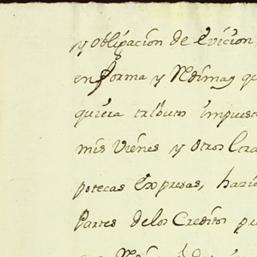 y obligacion de Evicion,
en forma y
quiera tributo impuest
mis Vienes y otros
potecas Expresas, hazi
Partes de los Creditos pu